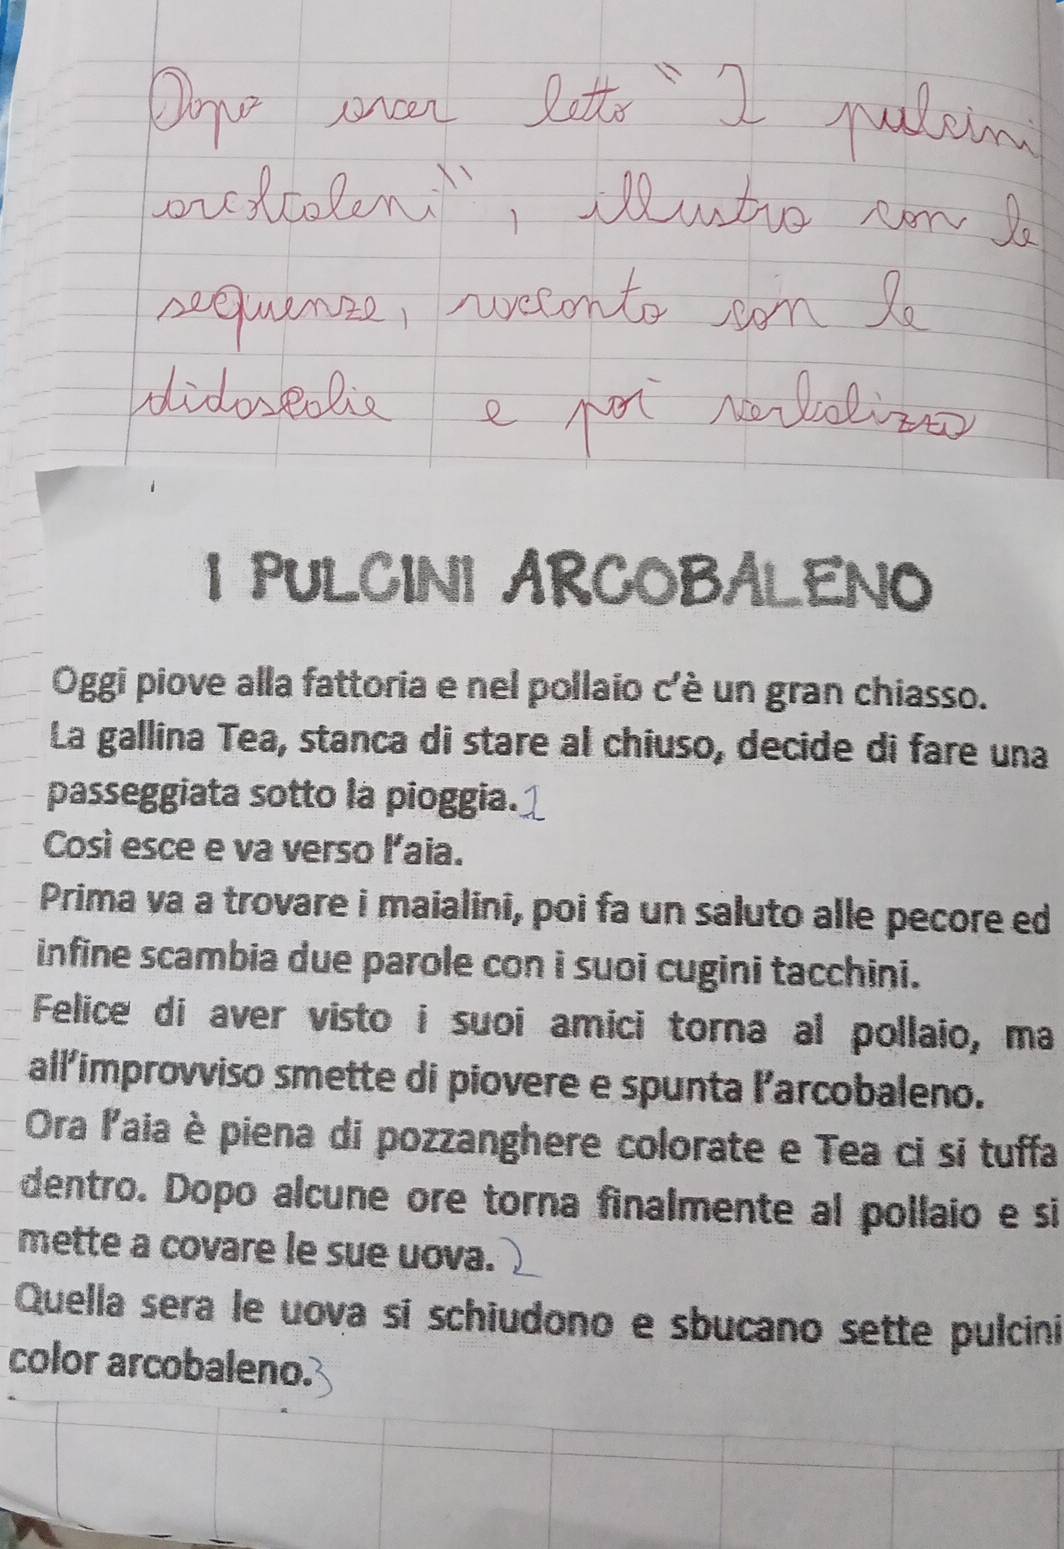 Dopo aver letto "I pulcini
arcobaleni", illustro con le
sequenze, racconto con le
didascalie e poi verbalizzo
I PULCINI ARCOBALENO
Oggi piove alla fattoria e nel pollaio c'è un gran chiasso.
La gallina Tea, stanca di stare al chiuso, decide di fare una
passeggiata sotto la pioggia. 1
Così esce e va verso l'aia.
Prima va a trovare i maialini, poi fa un saluto alle pecore ed
infine scambia due parole con i suoi cugini tacchini.
Felice di aver visto i suoi amici torna al pollaio, ma
all'improvviso smette di piovere e spunta l'arcobaleno.
Ora l'aia è piena di pozzanghere colorate e Tea ci si tuffa
dentro. Dopo alcune ore torna finalmente al pollaio e si
mette a covare le sue uova. 2
Quella sera le uova si schiudono e sbucano sette pulcini
color arcobaleno. 3